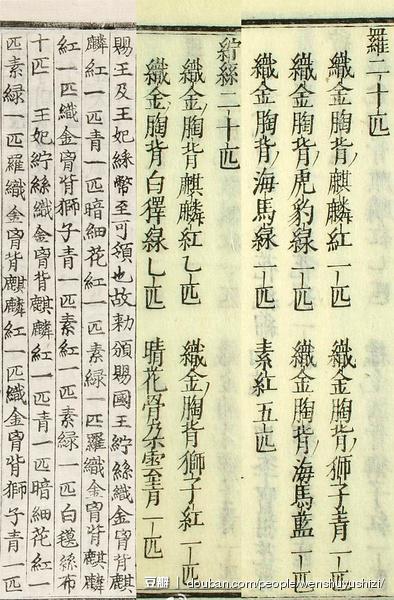 羅二十匹
織金胸背麒麟紅一匹 織金胸背獅子青一匹
織金胸背虎豹綠一匹 織金胸背海馬藍一匹
織金胸背海馬綠一匹 素紅五匹
紵絲二十匹
織金胸背麒麟紅乙匹 織金胸背獅子紅一匹
織金胸背白澤綠乙匹 晴花骨朵雲青一匹
賜王及王妃綵幣至可領也故勅頒賜國王紵絲織金胷背麒
麟紅一匹青一匹暗細花紅一匹素綠一匹羅織金胷背麒麟
紅一匹織金胷背獅子青一匹素紅一匹素綠一匹白氁絲布
十匹 王妃紵絲織金胷背麒麟紅一匹青一匹暗細花紅一
匹素綠一匹羅織金胷背麒麟紅一匹織金胷背獅子青一匹
豆瓣 douban.com/people/wenshuyushizi/